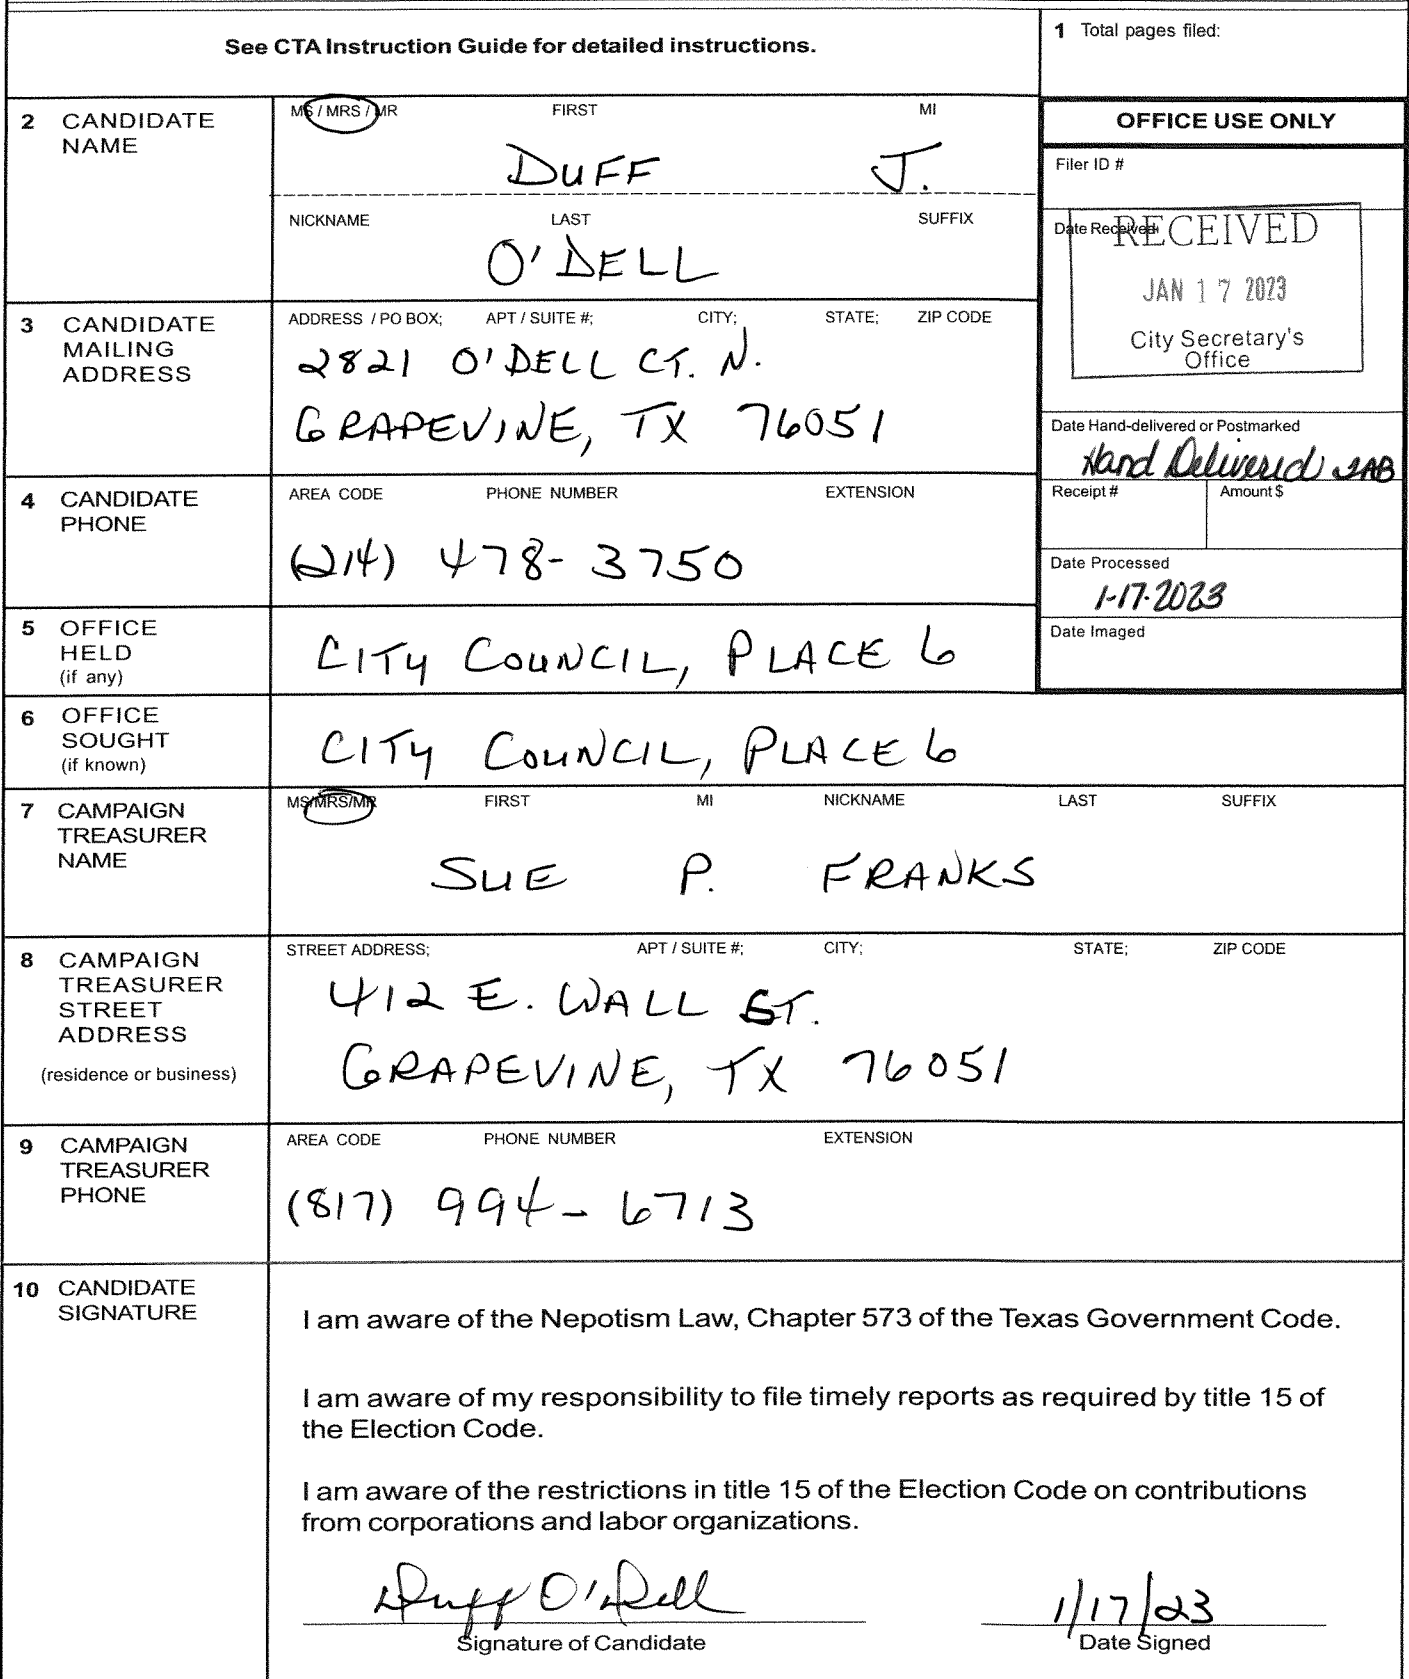 See CTA Instruction Guide for detailed instructions.
1 Total pages filed:
2 CANDIDATE NAME
MS / MRS / MR FIRST MI
DUFF J.
NICKNAME LAST SUFFIX
O'DELL
OFFICE USE ONLY
Filer ID #
Date Received
RECEIVED
JAN 17 2023
City Secretary's
Office
3 CANDIDATE MAILING ADDRESS
ADDRESS / PO BOX; APT / SUITE #; CITY; STATE; ZIP CODE
2821 O'DELL CT. N.
GRAPEVINE, TX 76051
Date Hand-delivered or Postmarked
Hand Delivered
4 CANDIDATE PHONE
AREA CODE PHONE NUMBER EXTENSION
(214) 478-3750
Receipt # Amount $
Date Processed
1-17-2023
Date Imaged
5 OFFICE HELD (if any)
CITY COUNCIL, PLACE 6
6 OFFICE SOUGHT (if known)
CITY COUNCIL, PLACE 6
7 CAMPAIGN TREASURER NAME
MS/MRS/MR FIRST MI NICKNAME LAST SUFFIX
SUE P. FRANKS
8 CAMPAIGN TREASURER STREET ADDRESS
(residence or business)
STREET ADDRESS; APT / SUITE #; CITY; STATE; ZIP CODE
412 E. WALL ST.
GRAPEVINE, TX 76051
9 CAMPAIGN TREASURER PHONE
AREA CODE PHONE NUMBER EXTENSION
(817) 994-6713
10 CANDIDATE SIGNATURE
I am aware of the Nepotism Law, Chapter 573 of the Texas Government Code.
I am aware of my responsibility to file timely reports as required by title 15 of
the Election Code.
I am aware of the restrictions in title 15 of the Election Code on contributions
from corporations and labor organizations.
Duff O'Dell 1/17/23
Signature of Candidate Date Signed